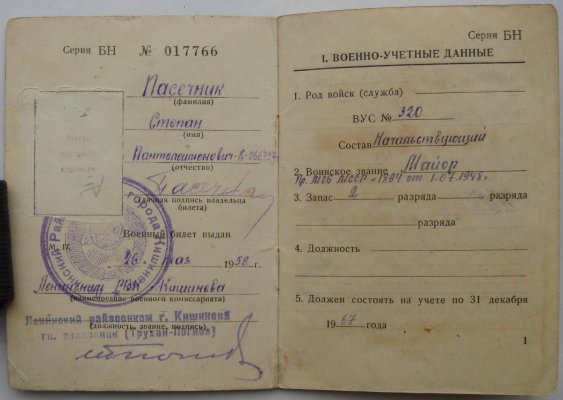 Серия БН № 017766
Пасечник
(фамилия)
Степан
(имя)
Пантелеймонович
(отчество)
(личная подпись владельца
билета)
Военный билет выдан
М. П.
26 мая 1958 г.
Ленинским РВК Кишинева
(наименование военного комиссариата)
Ленинский райвоенком г. Кишинева
(должность, звание, подпись)
Серия БН
I. ВОЕННО-УЧЕТНЫЕ ДАННЫЕ
1. Род войск (служба)
ВУС № 320
Состав Начальствующий
2. Воинское звание Майор
Пр. МГБ МССР №1894 от 1.07.1948г.
3. Запас 2 разряда разряда
разряда
4. Должность
5. Должен состоять на учете по 31 декабря
1967 года
1